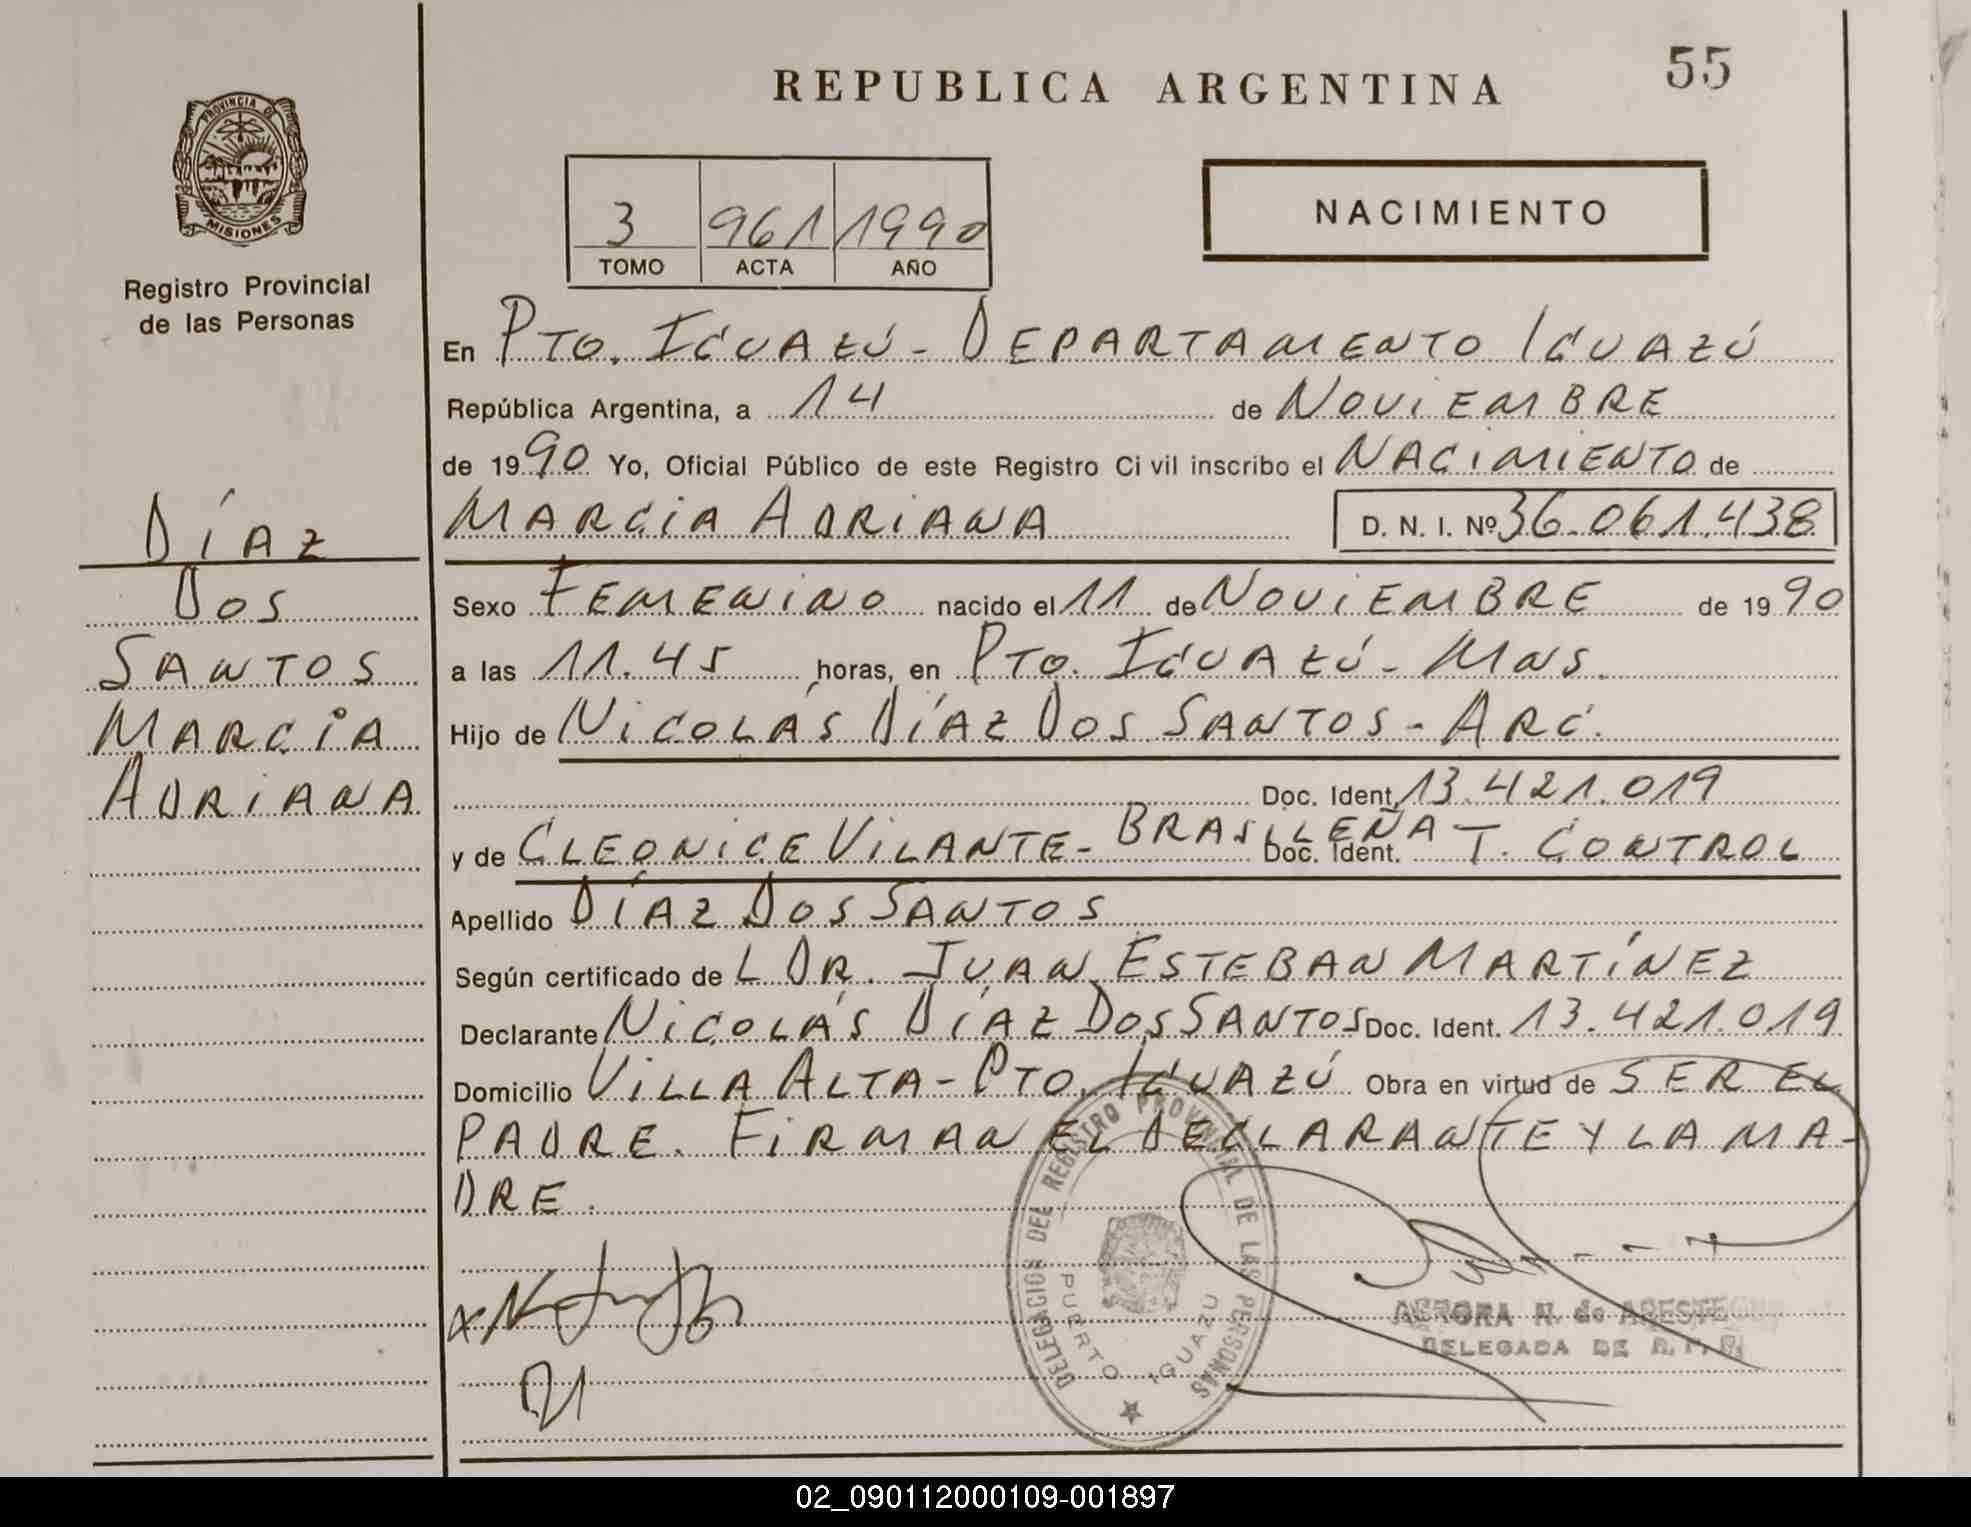 REPUBLICA ARGENTINA
55
PROVINCIA DE
MISIONES
Registro Provincial
de las Personas
3 961 1990
TOMO ACTA AÑO
NACIMIENTO
En PTO. IGUAZÚ - DEPARTAMENTO IGUAZÚ
República Argentina, a 14 de NOVIEMBRE
de 1990 Yo, Oficial Público de este Registro Civil inscribo el NACIMIENTO de
MARCIA ADRIANA D. N. I. Nº 36.061.438
DÍAZ
DOS
SANTOS
MARCIA
ADRIANA
Sexo FEMENINO nacido el 11 de NOVIEMBRE de 1990
a las 11.45 horas, en PTO. IGUAZÚ - MNS.
Hijo de NICOLÁS DÍAZ DOS SANTOS - ARG.
Doc. Ident. 13.421.019
y de CLEONICE VILANTE - BRASILEÑA Doc. Ident. T. CONTROL
Apellido DÍAZ DOS SANTOS
Según certificado de L DR. JUAN ESTEBAN MARTÍNEZ
Declarante NICOLÁS DÍAZ DOS SANTOS Doc. Ident. 13.421.019
Domicilio VILLA ALTA - PTO. IGUAZÚ Obra en virtud de SER EL
PADRE. FIRMAN EL DECLARANTE Y LA MA-
DRE.
DELEGACION DEL REGISTRO PROVINCIAL DE LAS PERSONAS
PUERTO IGUAZU
DELEGADA DE R. P. P.
02_090112000109-001897